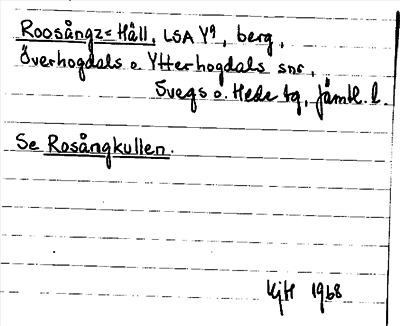 Roosångz=Håll, LSA Y9, berg,
Överhogdals o. Ytterhogdals snr,
Svegs o. Hede tg, Jämtl. l.
Se Rosångkullen.
KjH 1968